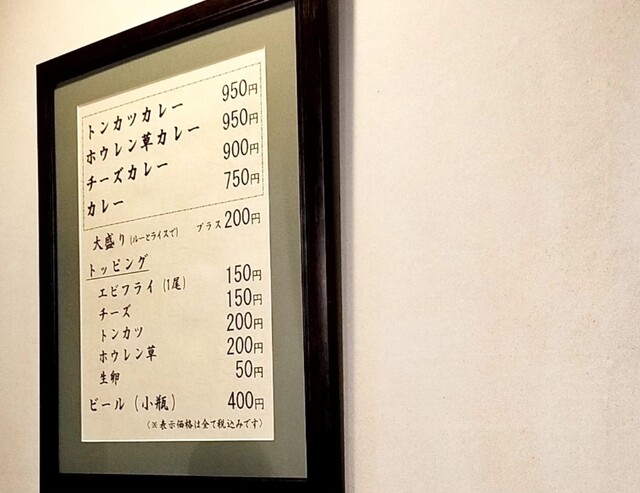 トンカツカレー 950円
ホウレン草カレー 950円
チーズカレー 900円
カレー 750円
大盛り(ルーとライスで) プラス200円
トッピング
エビフライ(1尾) 150円
チーズ 150円
トンカツ 200円
ホウレン草 200円
生卵 50円
ビール(小瓶) 400円
(※表示価格は全て税込みです)